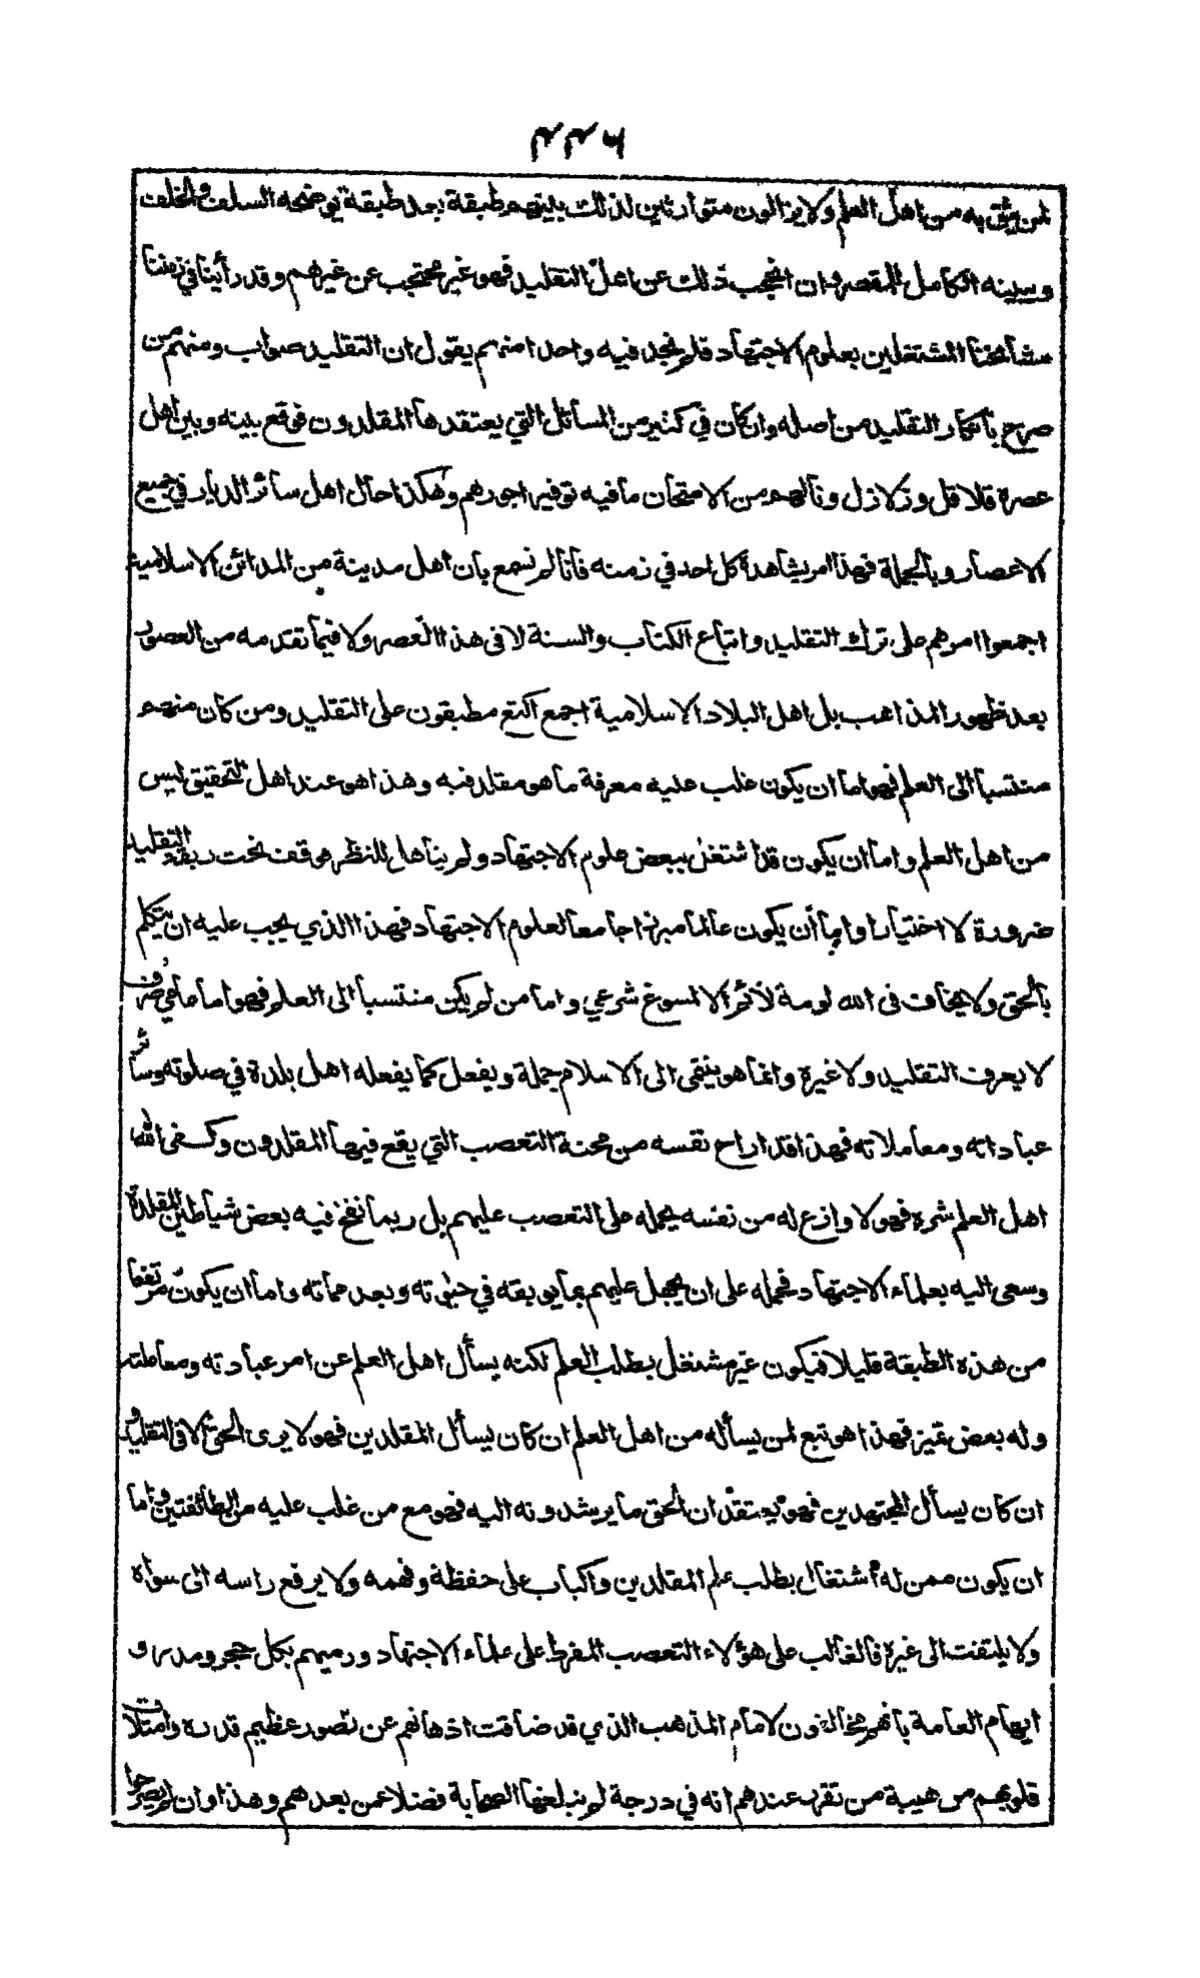 ٢٢٣
لمن يثق به من اهل العلم ولا يزالون متوارثين لذلك بينهم طبقة بعد طبقة يوضحه السلف والخلف
ويبينه الكامل للمقصر وان انحجب ذلك عن اهل التقليد فهو غير محتجب عن غيرهم وقد رأينا في زمننا
مشائخنا المشتغلين بعلوم الاجتهاد فلم نجد فيه واحدا منهم يقول ان التقليد صواب ومنهم من
صرح بانكار التقليد من اصله وان كان في كثير من المسائل التي يعتقدها المقلدون فوقع بينه وبين اهل
عصره قلاقل وزلازل ونالهم من الامتحان ما فيه توفير اجورهم وهكذا حال اهل سائر الديار في جميع
الاعصار وبالجملة فهذا امر يشاهده كل احد في زمنه فانا لم نسمع بان اهل مدينة من المدائن الاسلامية
اجمعوا امرهم على ترك التقليد واتباع الكتاب والسنة لا في هذا العصر ولا فيما تقدمه من العصور
بعد ظهور المذاهب بل اهل البلاد الاسلامية اجمع اكتع مطبقون على التقليد ومن كان منهم
منتسبا الى العلم فهو اما ان يكون غلب عليه معرفة ما هو مقلد فيه وهذا هو عند اهل التحقيق ليس
من اهل العلم واما ان يكون قد اشتغل ببعض علوم الاجتهاد ولم يتاهل للنظر فوقف تحت ربقة التقليد
ضرورة لا اختيارا واما أن يكون عالما مبرزا جامعا لعلوم الاجتهاد فهذا الذي يجب عليه ان يتكلم
بالحق ولا يخاف فى الله لومة لائم الا لمسوغ شرعي واما من لم يكن منتسبا الى العلم فهو اما عامي صرف
لا يعرف التقليد ولا غيره وانما هو ينتمى الى الاسلام جملة ويفعل كما يفعله اهل بلده في صلوته وسائر
عباداته ومعاملاته فهذا قد اراح نفسه من محنة التعصب التي يقع فيها المقلدون وكفى الله
اهل العلم شره فهو لا وازع له من نفسه يحمله على التعصب عليهم بل ربما نفخ فيه بعض شياطين المقلدة
وسعى اليه بعلماء الاجتهاد فحمله على ان يجهل عليهم بما يوبقه في حيوته وبعد مماته واما ان يكون مرتفعا
من هذه الطبقة قليلا فيكون غير مشتغل بطلب العلم لكنه يسأل اهل العلم عن امر عبادته ومعاملته
وله بعض تميز فهذا هو تبع لمن يسأله من اهل العلم ان كان يسأل المقلدين فهو لا يرى الحق الا في التقليد و
ان كان يسأل المجتهدين فهو يعتقد ان الحق ما يرشدونه اليه فهو مع من غلب عليه من الطائفتين واما
ان يكون ممن له اشتغال بطلب علم المقلدين واكباب على حفظه وفهمه ولا يرفع راسه الى سواه
ولا يلتفت الى غيره فالغالب على هؤلاء التعصب المفرط على علماء الاجتهاد ورميهم بكل حجر ومدر و
ايهام العامة بانهم مخالفون لامام المذهب الذي قد ضاقت اذهانهم عن تصور عظيم قدره وامتلات
قلوبهم من هيبة من تقرر عندهم انه في درجة لم يبلغها الصحابة فضلا عمن بعدهم وهذا وان لم يصرحوا